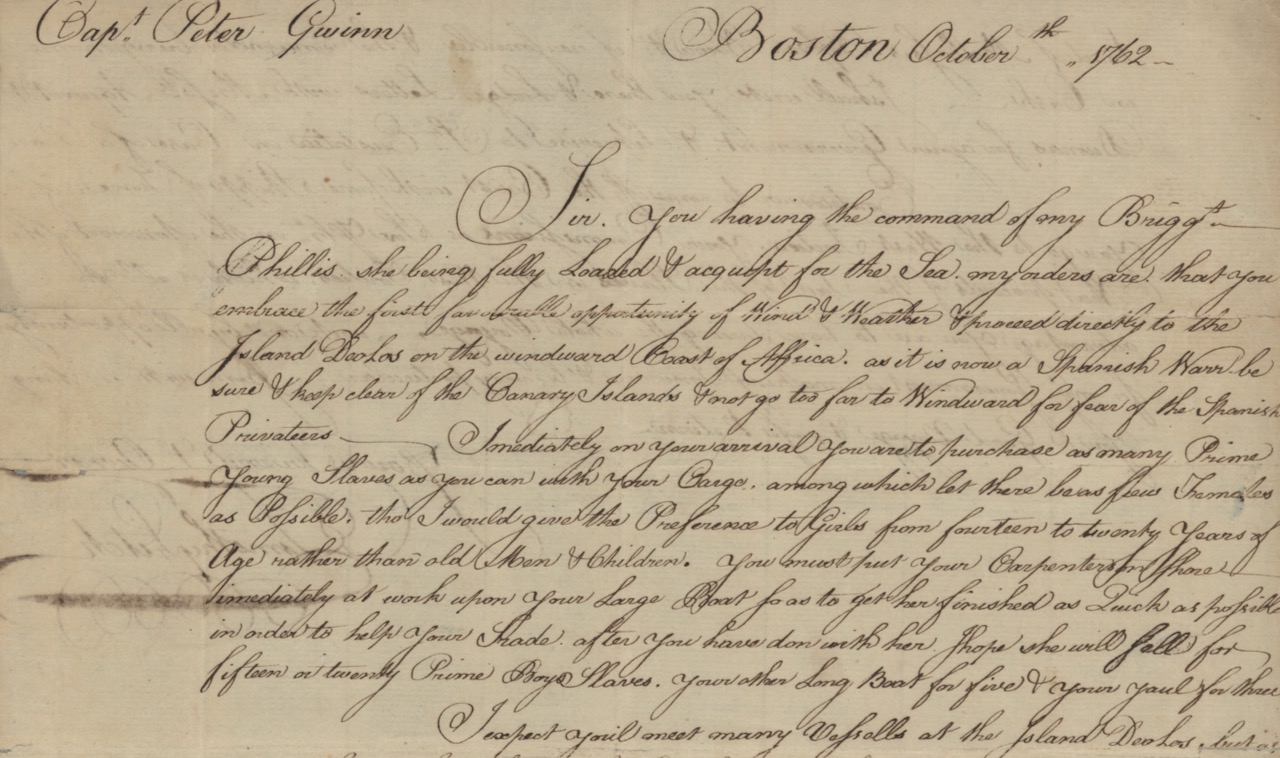 Capt. Peter Gwinn
Boston October th „ 1762 —
Sir. You having the command of my Briggt —
Phillis she being fully Loaded & acquipt for the Sea. my orders are. that you
embrace the first favourable opportunity of Wind & Weather & proceed directly to the
Island DeoLos on the windward Coast of Affrica. as it is now a Spanish Warr be
sure & keep clear of the Canary Islands & not go too far to Windward for fear of the Spanish
Privateers — Imediately on your arrival You are to purchase as many Prime
Young Slaves as you can with your Cargo. among which let there be as few Females
as Possible. tho I would give the Preference to Girls from fourteen to twenty Years of
Age rather than old Men & Children. You must put your Carpenters on Shore —
imediately at work upon your Large Boat so as to get her finished as Quick as possible
in order to help your Trade. after you have don with her. I hope she will sell for
fifteen or twenty Prime Boys Slaves. Your other Long Boat for five & your yaul for three
I expect youil meet many Vessells at the Island DeoLos, but as